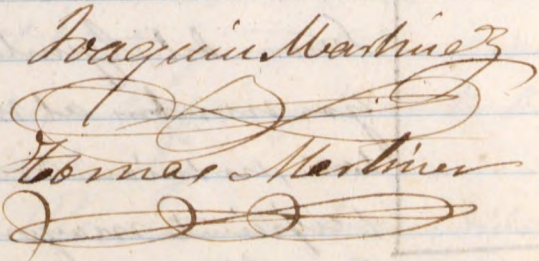 Joaquin Martinez
Tomas Martinez